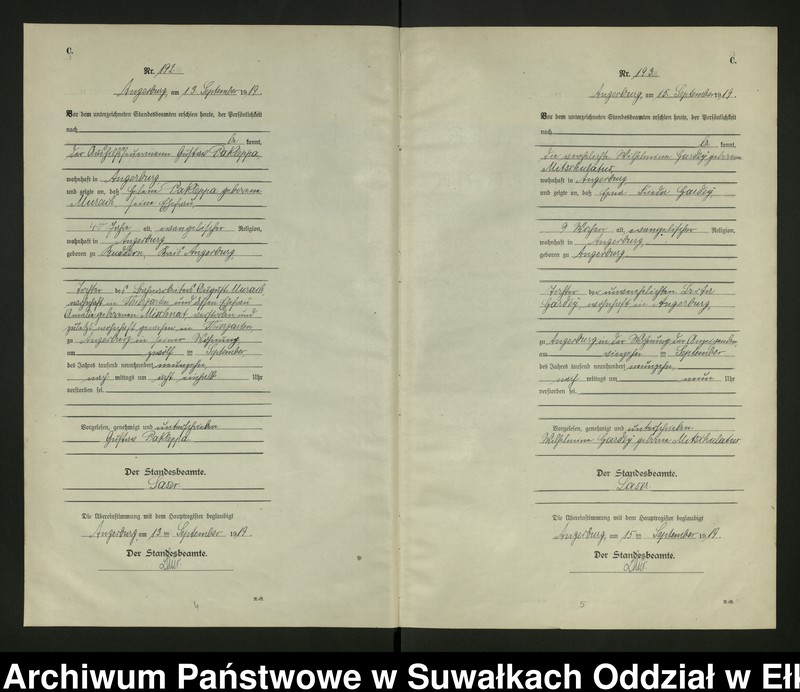 C.
Nr. 192
Angerburg, am 13. September 1919.
Vor dem unterzeichneten Standesbeamten erschien heute, der Persönlichkeit
nach
kannt,
der Gustav Pakleppa,
wohnhaft in Angerburg
und zeigte an, daß Pakleppa geborene
Murach, seine Ehefrau,
45 Jahre alt, evangelischer Religion,
wohnhaft in Angerburg
geboren zu Kreis Angerburg
Tochter des Bahnarbeiters August Murach
wohnhaft in und dessen Ehefrau
Amalie geborenen verstorben und
zuletzt wohnhaft gewesen in
zu Angerburg in seiner Wohnung
am zwölften September
des Jahres tausend neunhundert neunzehn
nach mittags um acht einhalb Uhr
verstorben sei.
Vorgelesen, genehmigt und unterschrieben
Gustav Pakleppa
Der Standesbeamte.
Laser
Die Übereinstimmung mit dem Hauptregister beglaubigt
Angerburg, am 13 ten September 1919.
Der Standesbeamte.
4
C.
Nr. 193
Angerburg, am 15. September 1919.
Vor dem unterzeichneten Standesbeamten erschien heute, der Persönlichkeit
nach
kannt,
die verehelichte Wilhelmine Gardey geborene
Metschulatus
wohnhaft in Angerburg
und zeigte an, daß Erna Frieda Gardey,
9 Wochen alt, evangelischer Religion,
wohnhaft in Angerburg
geboren zu Angerburg
Tochter der unverehelichten Berta
Gardey, wohnhaft in Angerburg,
zu Angerburg in der Wohnung der Anzeigenden
am vierzehn ten September
des Jahres tausend neunhundert neunzehn
nach mittags um neun Uhr
verstorben sei.
Vorgelesen, genehmigt und unterschrieben
Wilhelmine Gardey geborene Metschulatus
Der Standesbeamte.
Laser
Die Übereinstimmung mit dem Hauptregister beglaubigt
Angerburg, am 15 ten September 1919.
Der Standesbeamte.
5
Archiwum Państwowe w Suwałkach Oddział w Ełk